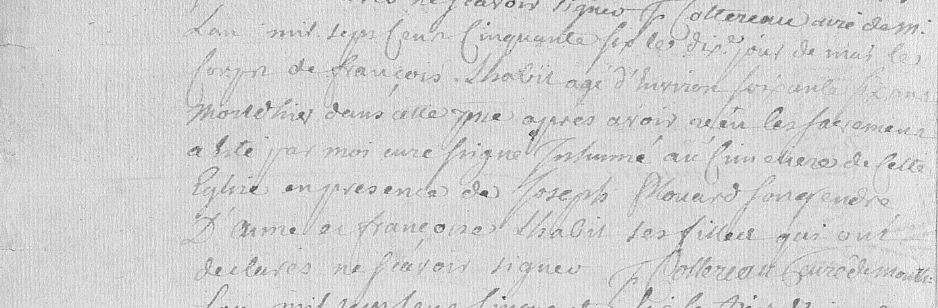 ne sçavoir signer J. Cottereau curé de m
L'an mil sept Cent Cinquante six le dix jour de mai le
Corps de françois Thabit agé d'Environ soixante six ans
mort d'hier dans cette psse apres avoir reçu les sacremens
a Esté par moi curé signe Inhumé au Cimetiere de Cette
Eglise en presence de Joseph son gendre
D'anne et françoise Thabit ses filles qui ont
declarés ne sçavoir signer J. Cottereau Curé de
L'an mil sept cens cinquante six le